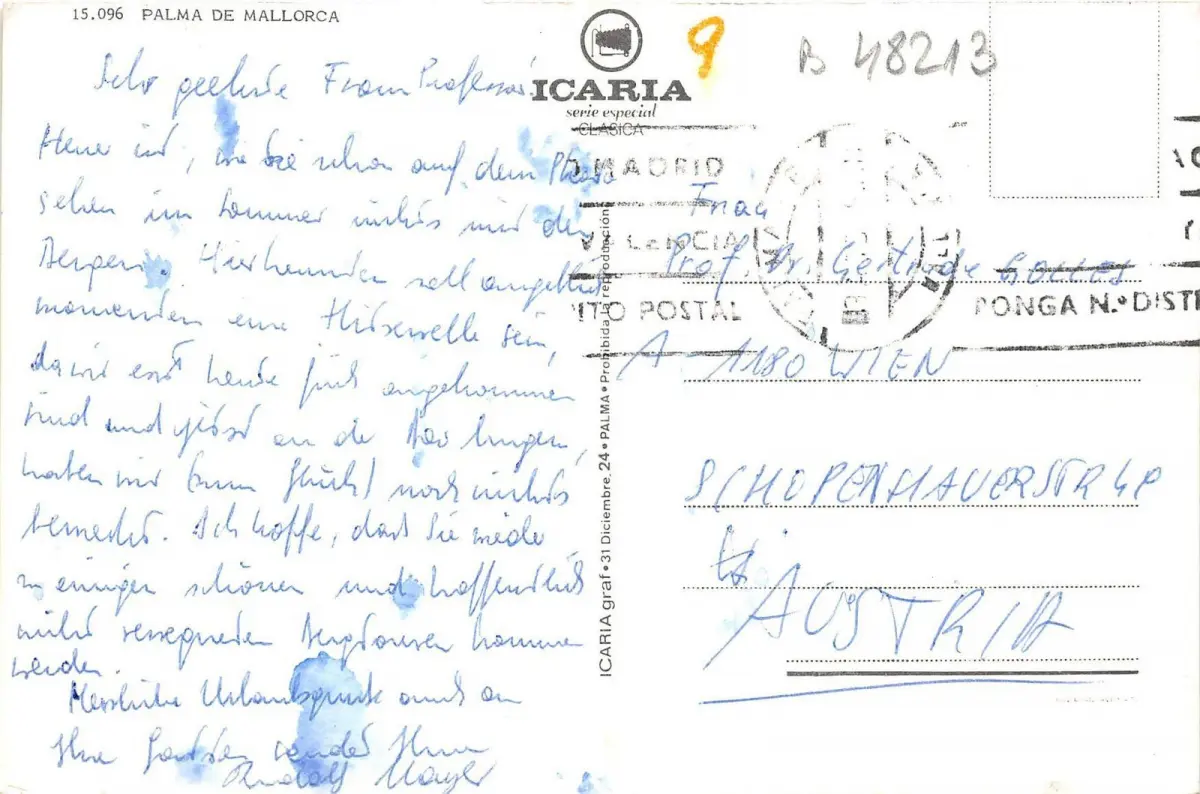 15.096 PALMA DE MALLORCA
ICARIA
serie especial
CLASICA
9
B 48213
Sehr geehrte Frau Professor!
Heuer ist, wie Sie schon auf dem Photo
sehen im Sommer nichts mit den
Bergen. Hierherunten soll angeblich
momentan eine Hitzewelle sein,
da wir erst heute früh angekommen
sind und jetzt an der liegen,
haben wir (zum Glück) noch nichts
bemerkt. Ich hoffe, daß Sie wieder
zu einigen schönen und hoffentlich
nicht verregneten Bergtouren kommen
werden.
Herzliche Urlaubsgrüße auch an
Ihre Gatten sendet Ihnen
Rudolf Mayer
MADRID
VALENCIA
POSTAL
PONGA N.º DIST
Frau
Prof. Dr. Gertrude
A-1180 WIEN
SCHOPENHAUERSTR
AUSTRIA
ICARIA graf • 31 Diciembre, 24 • PALMA • Prohibida la reproducción